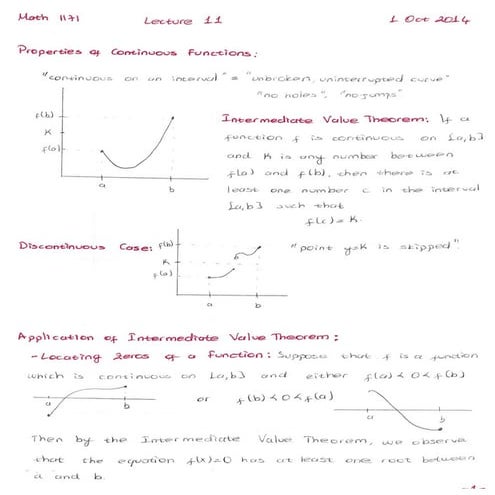 Math 1171 Lecture 11 1 Oct 2014
Properties of Continuous Functions:
"continuous on an interval" = "unbroken, uninterrupted curve"
"no holes", "no jumps"
f(b)
K
f(a)
a b
Intermediate Value Theorem: If a
function f is continuous on [a,b]
and K is any number between
f(a) and f(b), then there is at
least one number c in the interval
[a,b] such that
f(c)=K.
Discontinuous Case: f(b) "point y=K is skipped".
K
f(a)
a b
Application of Intermediate Value Theorem:
-Locating Zeros of a Function: Suppose that f is a function
which is continuous on [a,b] and either f(a)<0<f(b)
a b or f(b)<0<f(a) a b
Then by the Intermediate Value Theorem, we observe
that the equation f(x)=0 has at least one root between
a and b.
-1-